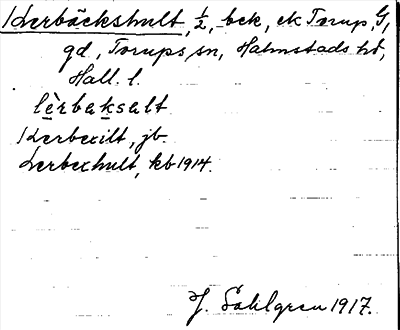 Lerbäckshult, ½, bck, ek Torup, G,
gd, Torups sn, Halmstads hd,
Hall. l.
lèrbaksalt
Lerbexilt, jb.
Lerbexhult, kb 1914.
J. Sahlgren 1917.